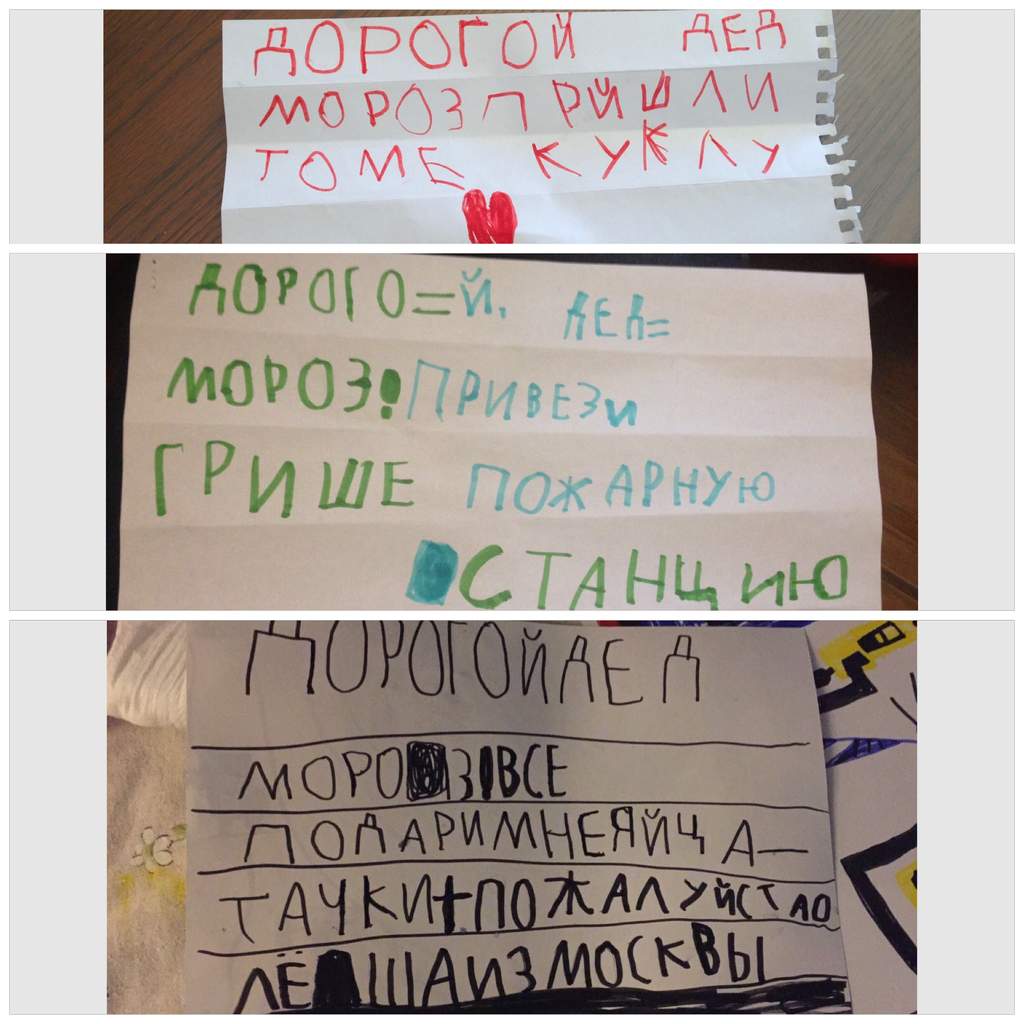 ДОРОГОЙ ДЕД
МОРОЗ ПРИШЛИ
ТОМЕ КУКЛУ
ДОРОГО=Й, ДЕД=
МОРОЗ! ПРИВЕЗИ
ГРИШЕ ПОЖАРНУЮ
СТАНЦИЮ
ДОРОГОЙДЕД
МОРОЗ!ВСЕ
ПОДАРИМНЕЯЙЦА-
ТАЧКИ+ПОЖАЛУЙСТАО
ЛЁШАИЗМОСКВЫ